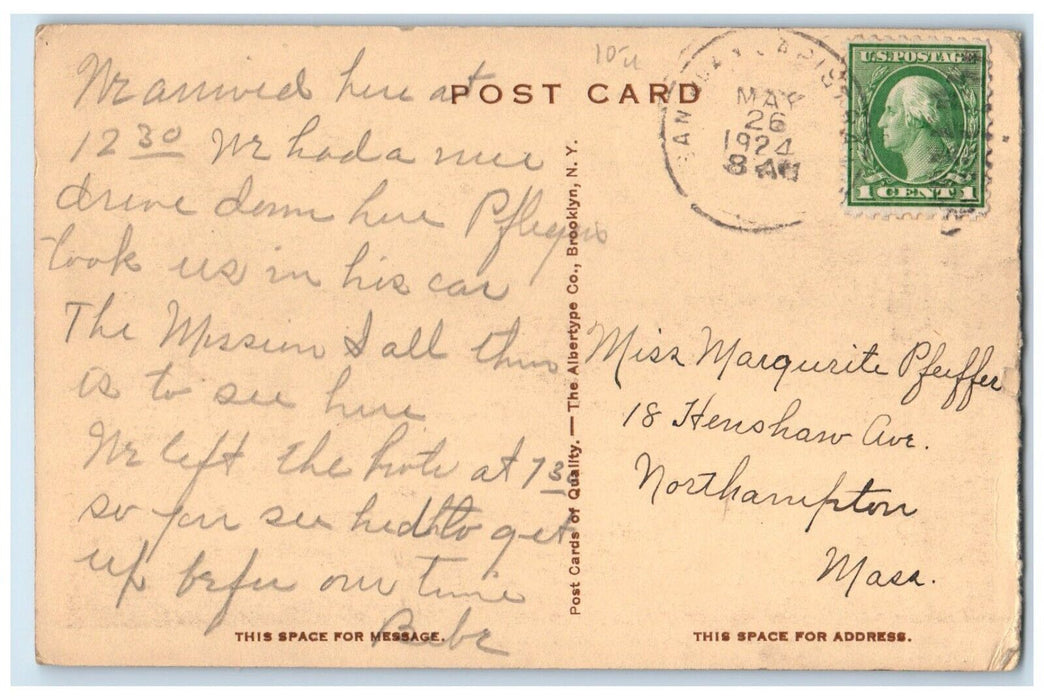 POST CARD
We arrived here at
12 30 We had a nice
drive down here
took us in his car
The Mission & all there
is to see here
We left the hote at 7 30
so you see had to get
up before our time
Babe
THIS SPACE FOR MESSAGE.
Post Cards of Quality. — The Albertype Co., Brooklyn, N. Y.
SAN JUAN CAPIS
MAY
26
1924
8 AM
U.S. POSTAGE
1 CENT 1
Miss Margurite Pfeiffer
18 Henshaw Ave.
Northampton
Mass.
THIS SPACE FOR ADDRESS.